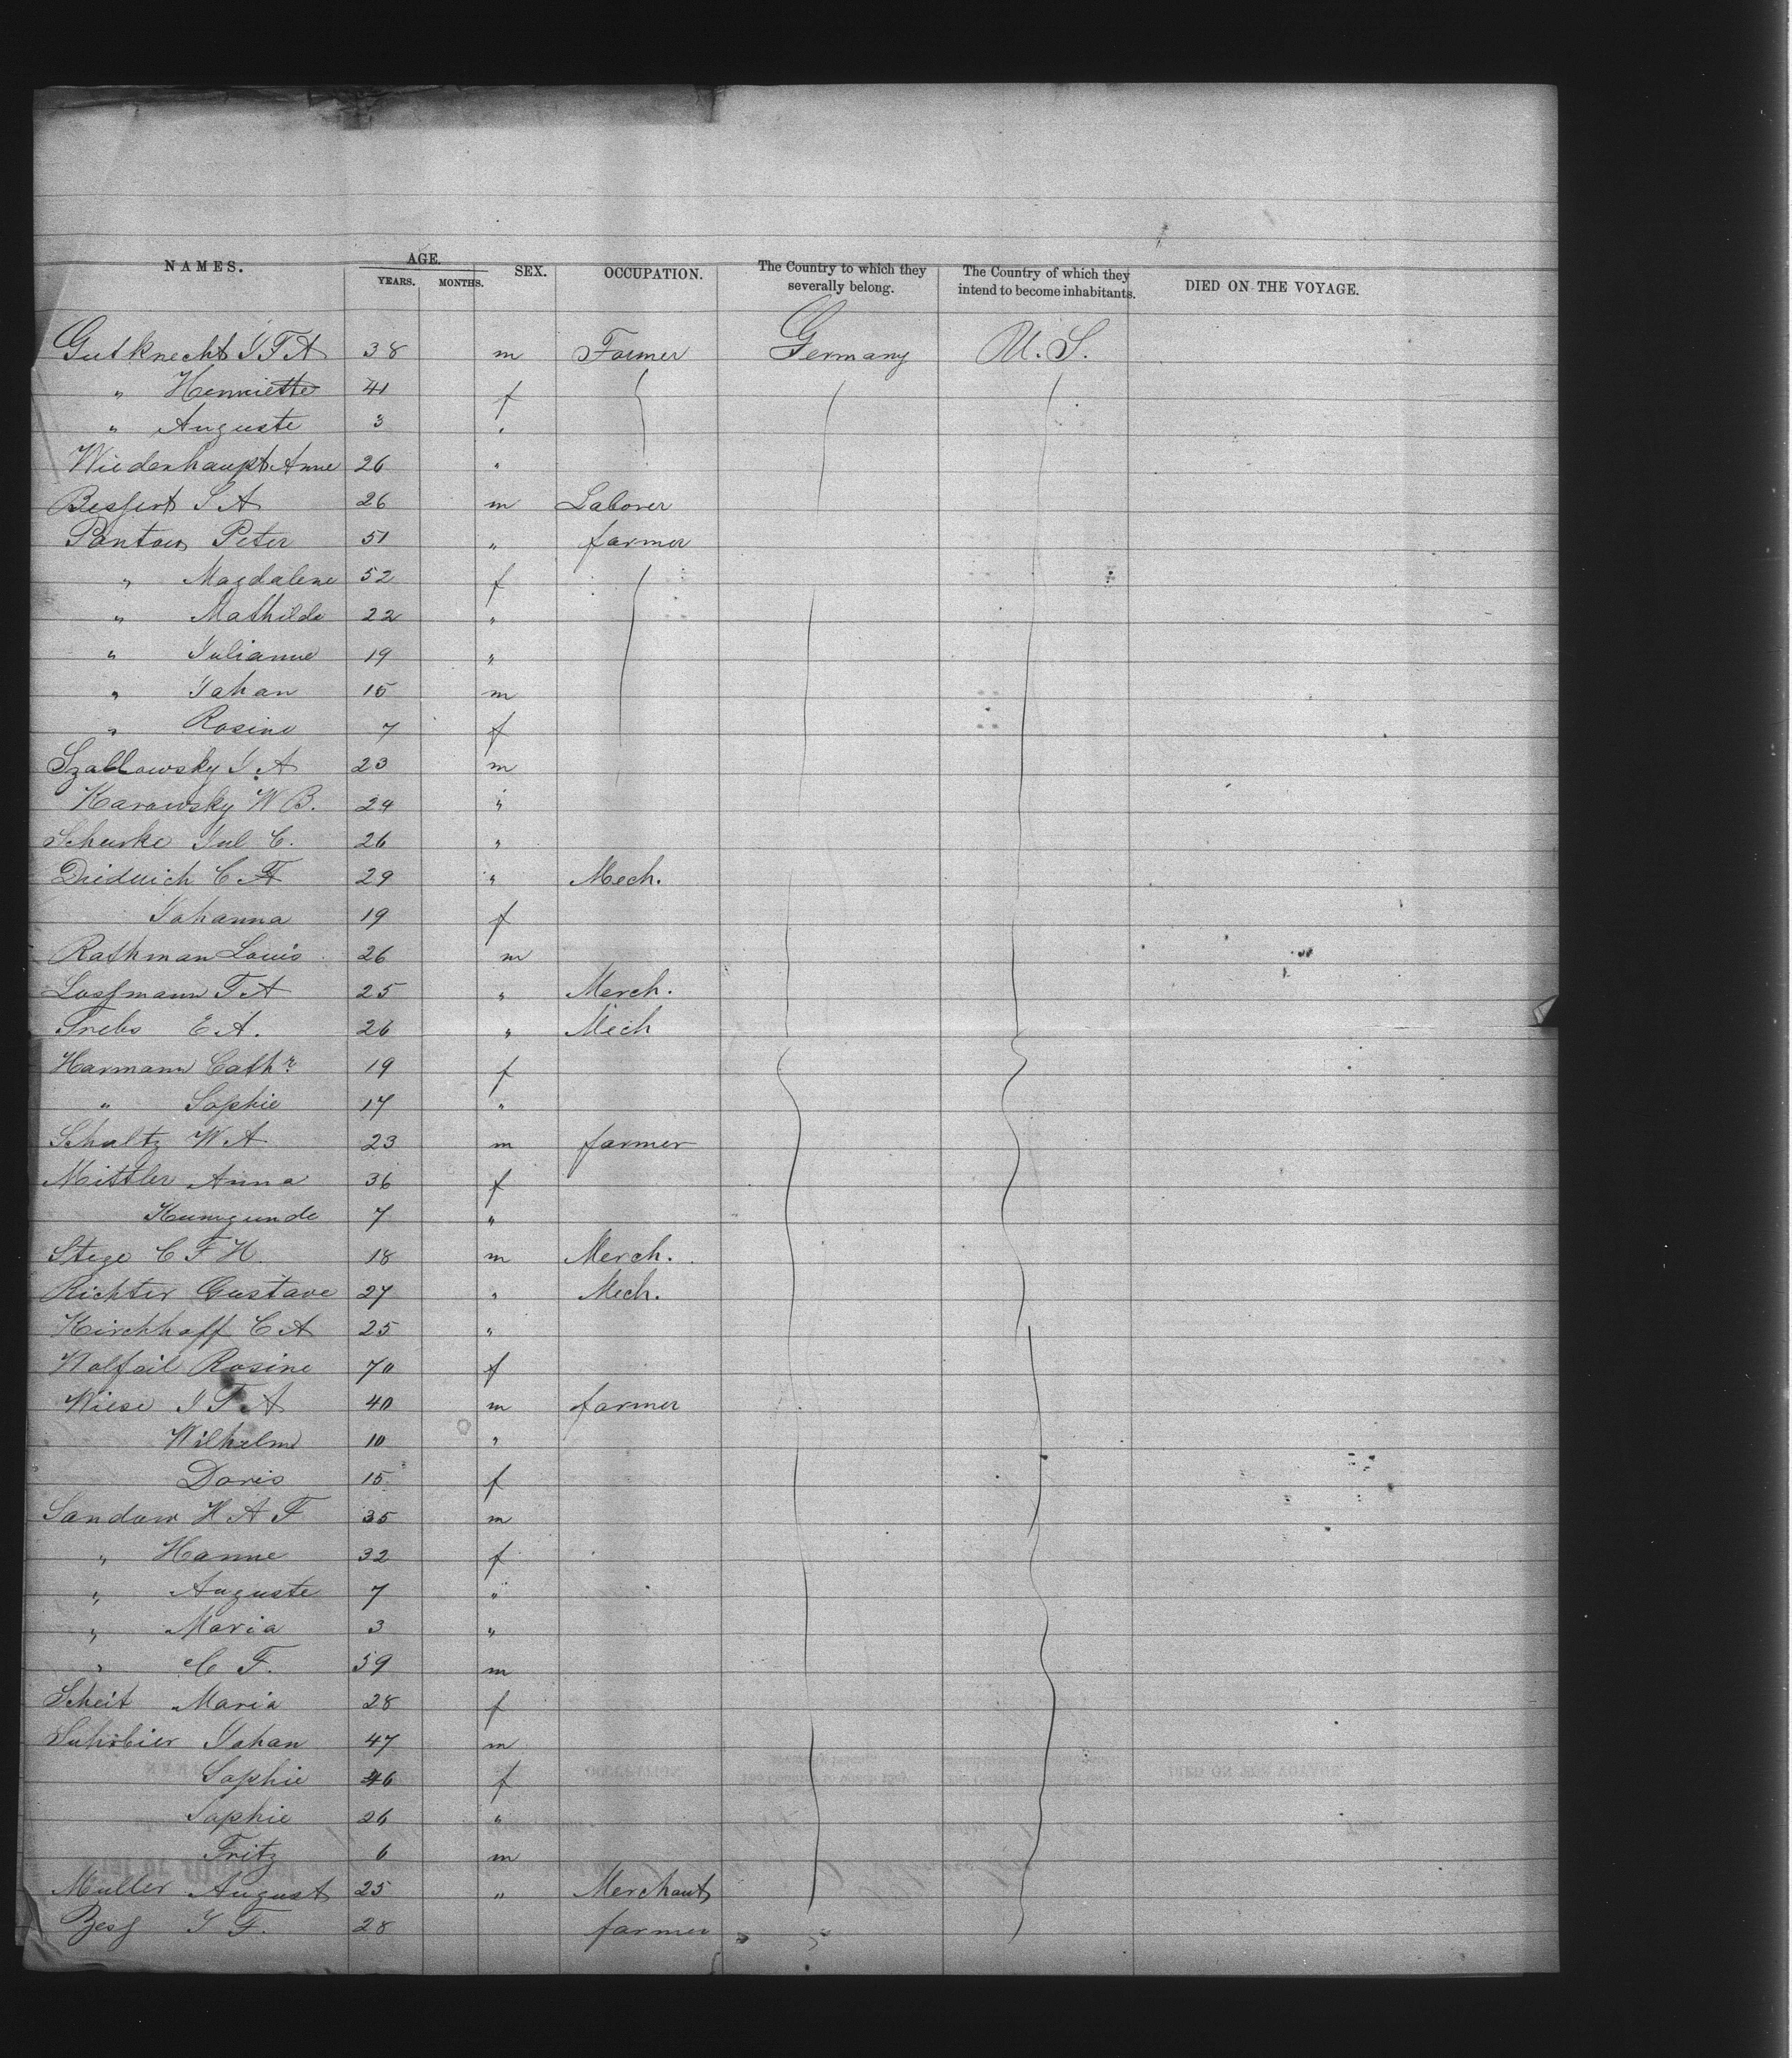 NAMES. AGE. SEX. OCCUPATION. The Country to which they severally belong. The Country of which they intend to become inhabitants. DIED ON THE VOYAGE.
YEARS. MONTHS.
Gutknecht I F A 38 m Farmer Germany U. S.
" Henriette 41 f
" Auguste 3 "
Wiedenhaupt Anne 26 "
Bessert I A 26 m Laborer
Pantow Peter 51 " farmer
" Magdalene 52 f
" Mathilde 22 "
" Julianne 19 "
" Johan 15 m
" Rosine 7 f
Szablowsky I. A 23 m
Karowsky W B. 24 "
Schurke Jul C. 26 "
Diedrich C F 29 " Mech.
Johanna 19 f
Rathman Louis 26 m
Lossmann F A 25 " Merch.
Trebs E A. 26 " Mech
Harmann Cathr 19 f
" Sophie 17 "
Schultz W A 23 m farmer
Mittler Anna 36 f
Kunigunde 7 "
Stege C F H. 18 m Merch.
Richter Gustave 27 " Mech.
Kirchhoff C A 25 "
Rosine 70 f
Wiese I F A 40 m farmer
Wilhelm 10 "
Doris 15 f
Sandow H A F 35 m
" Hanne 32 f
" Auguste 7 "
" Maria 3 "
" C F. 59 m
Scheit Maria 28 f
Suhrbier Johan 47 m
Sophie 46 f
Sophie 26 "
Fritz 6 m
Muller August 25 " Merchant
I F. 28 farmer "